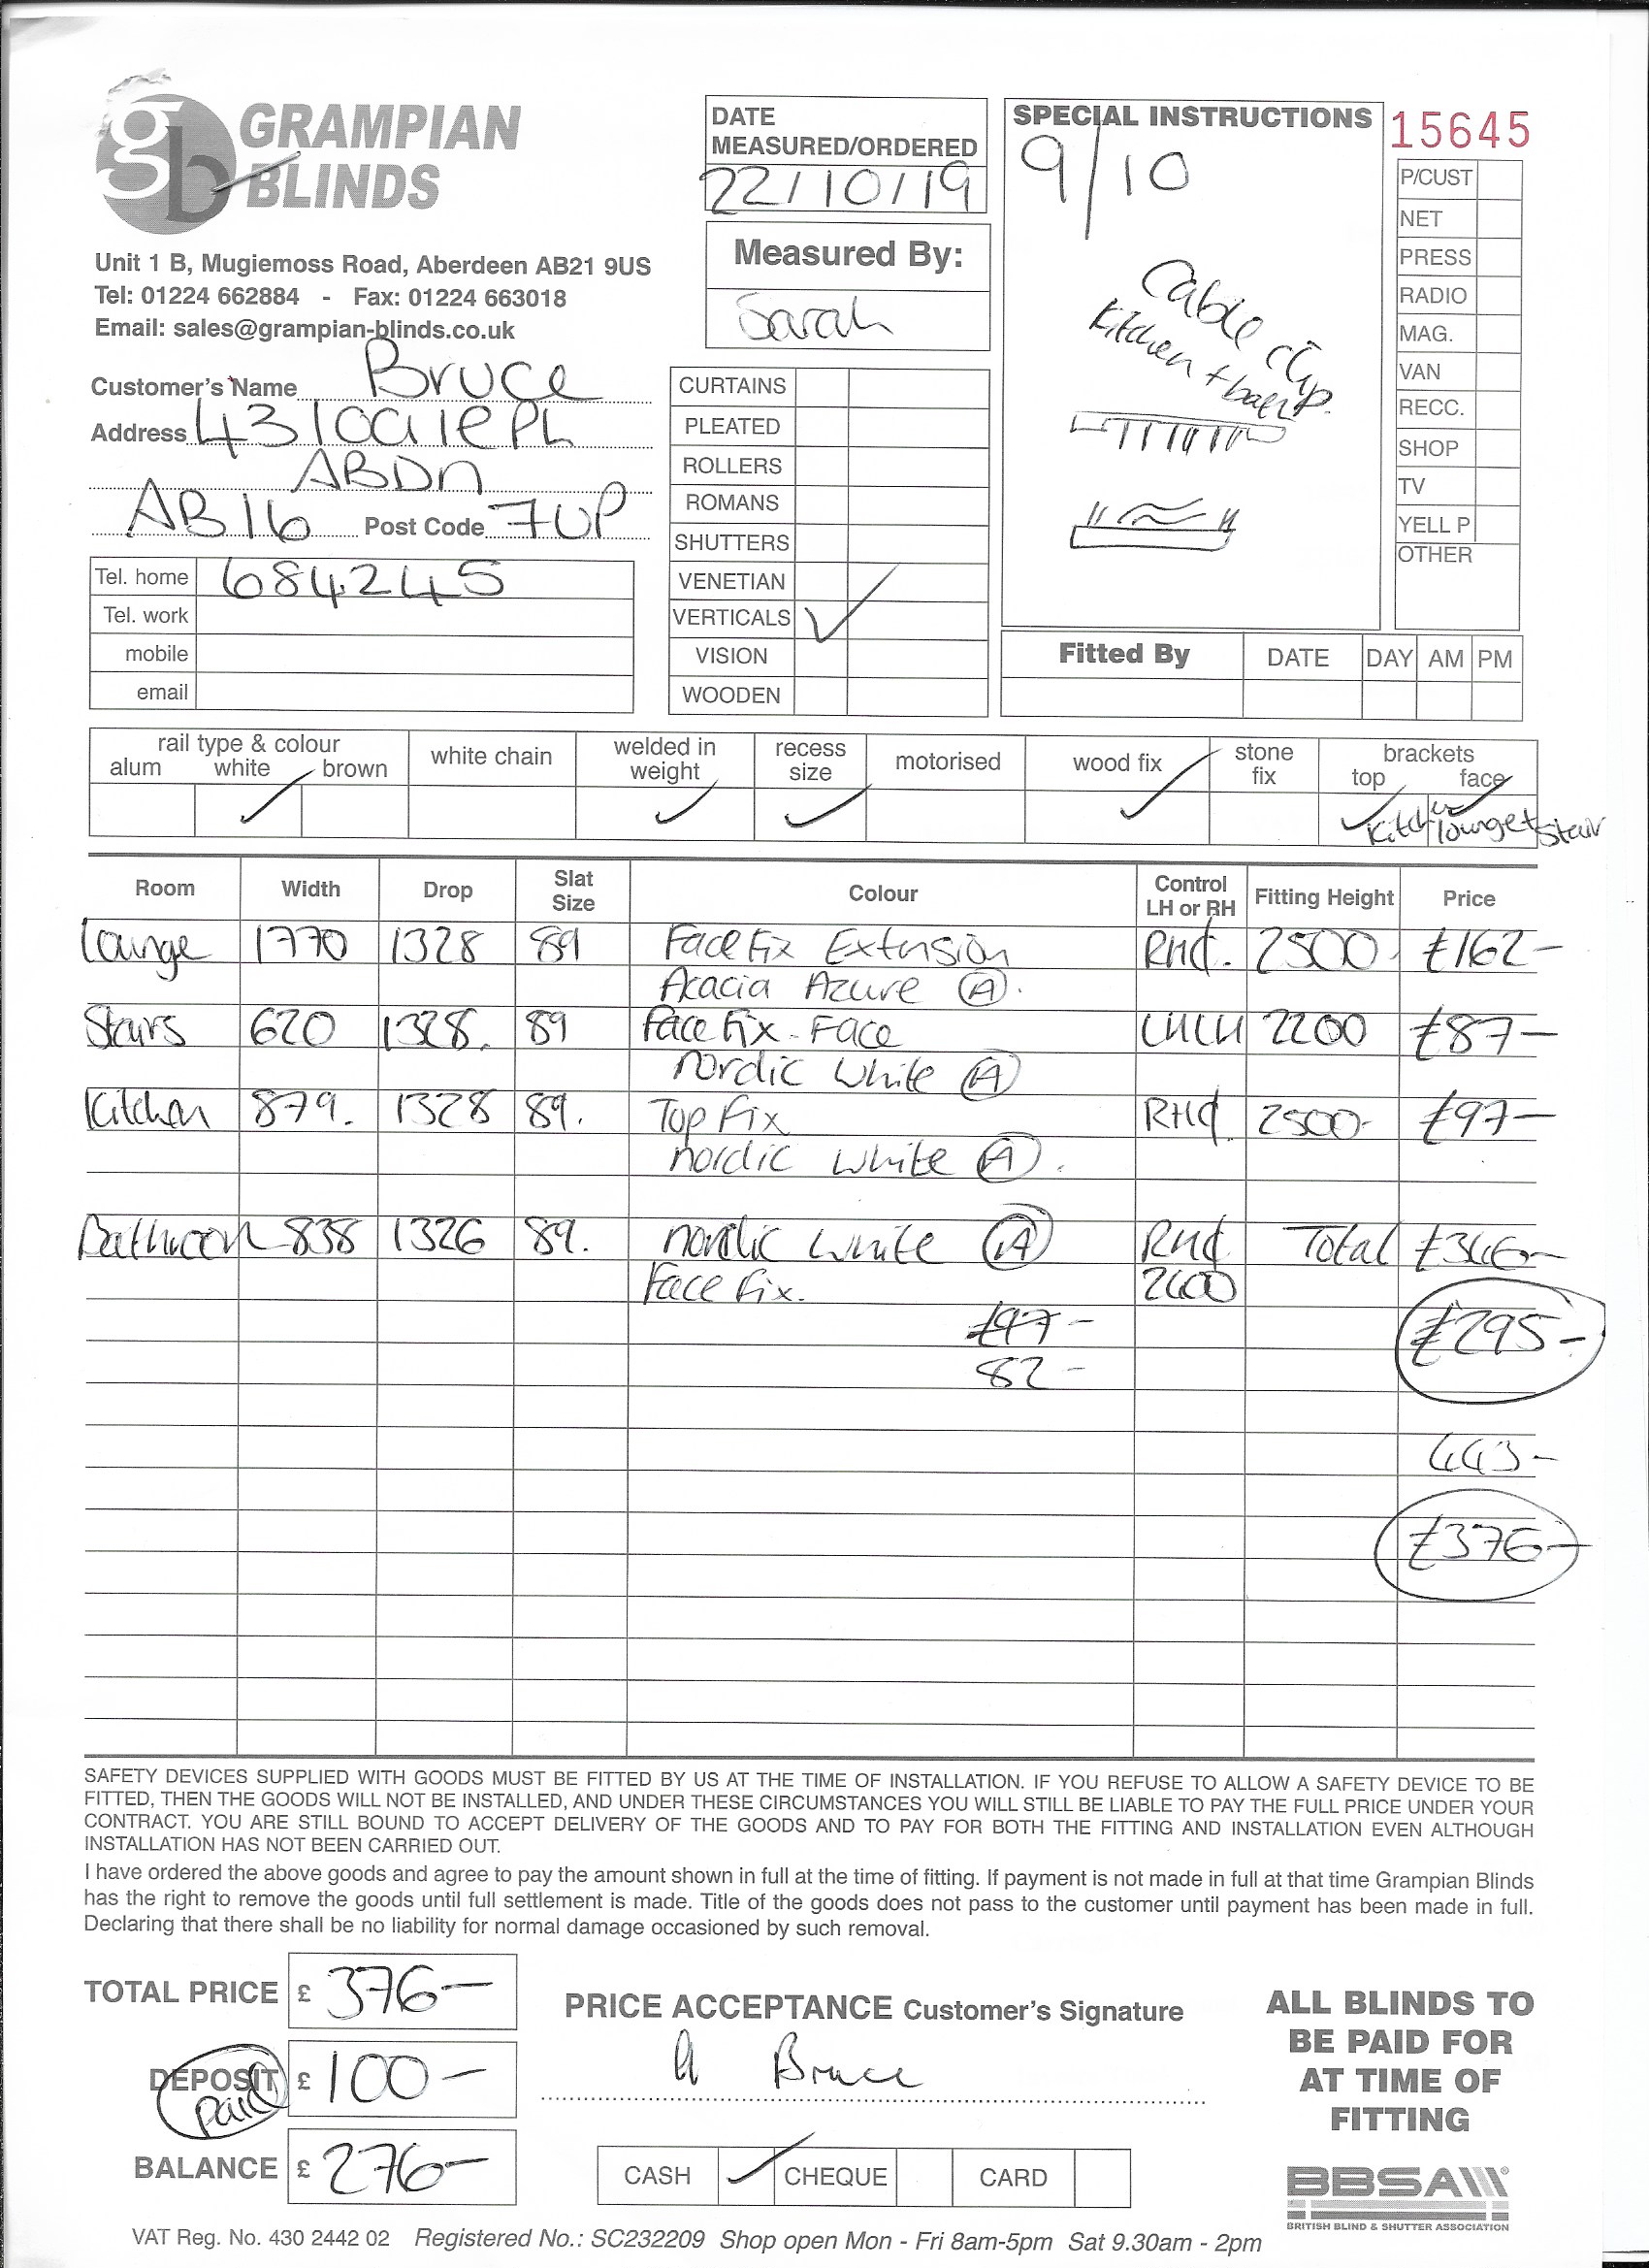 gb GRAMPIAN BLINDS
Unit 1 B, Mugiemoss Road, Aberdeen AB21 9US
Tel: 01224 662884 - Fax: 01224 663018
Email: sales@grampian-blinds.co.uk
Customer's Name Bruce
Address 43
ABDN
AB16 Post Code 7UP
Tel. home 684245
Tel. work
mobile
email
DATE
MEASURED/ORDERED
22/10/19
Measured By:
Sarah
CURTAINS
PLEATED
ROLLERS
ROMANS
SHUTTERS
VENETIAN
VERTICALS ✓
VISION
WOODEN
SPECIAL INSTRUCTIONS
9/10
Cable clip
Kitchen +
15645
P/CUST
NET
PRESS
RADIO
MAG.
VAN
RECC.
SHOP
TV
YELL P
OTHER
Fitted By DATE DAY AM PM
rail type & colour
alum white ✓ brown
white chain
welded in weight ✓
recess size ✓
motorised
wood fix ✓
stone fix
brackets
top ✓ face ✓
lounge + Stair
Room Width Drop Slat Size Colour Control LH or RH Fitting Height Price
Lounge 1770 1328 89 Face Fix Extension RH 2500 £162-
Acacia Azure (A).
Stairs 620 1328. 89 Face Fix - Face LHLH 2200 £87-
Nordic White (A)
Kitchen 879. 1328 89. Top Fix RH 2500- £97-
Nordic White (A).
Bathroom 838 1326 89. Nordic White (A) RH Total £346-
Face Fix. 2400
£97- £295-
82-
443-
£376-
SAFETY DEVICES SUPPLIED WITH GOODS MUST BE FITTED BY US AT THE TIME OF INSTALLATION. IF YOU REFUSE TO ALLOW A SAFETY DEVICE TO BE
FITTED, THEN THE GOODS WILL NOT BE INSTALLED, AND UNDER THESE CIRCUMSTANCES YOU WILL STILL BE LIABLE TO PAY THE FULL PRICE UNDER YOUR
CONTRACT. YOU ARE STILL BOUND TO ACCEPT DELIVERY OF THE GOODS AND TO PAY FOR BOTH THE FITTING AND INSTALLATION EVEN ALTHOUGH
INSTALLATION HAS NOT BEEN CARRIED OUT.
I have ordered the above goods and agree to pay the amount shown in full at the time of fitting. If payment is not made in full at that time Grampian Blinds
has the right to remove the goods until full settlement is made. Title of the goods does not pass to the customer until payment has been made in full.
Declaring that there shall be no liability for normal damage occasioned by such removal.
TOTAL PRICE £ 376-
DEPOSIT £ 100-
paid
BALANCE £ 276-
PRICE ACCEPTANCE Customer's Signature
A Bruce
CASH ✓ CHEQUE CARD
ALL BLINDS TO
BE PAID FOR
AT TIME OF
FITTING
BBSA
BRITISH BLIND & SHUTTER ASSOCIATION
VAT Reg. No. 430 2442 02 Registered No.: SC232209 Shop open Mon - Fri 8am-5pm Sat 9.30am - 2pm